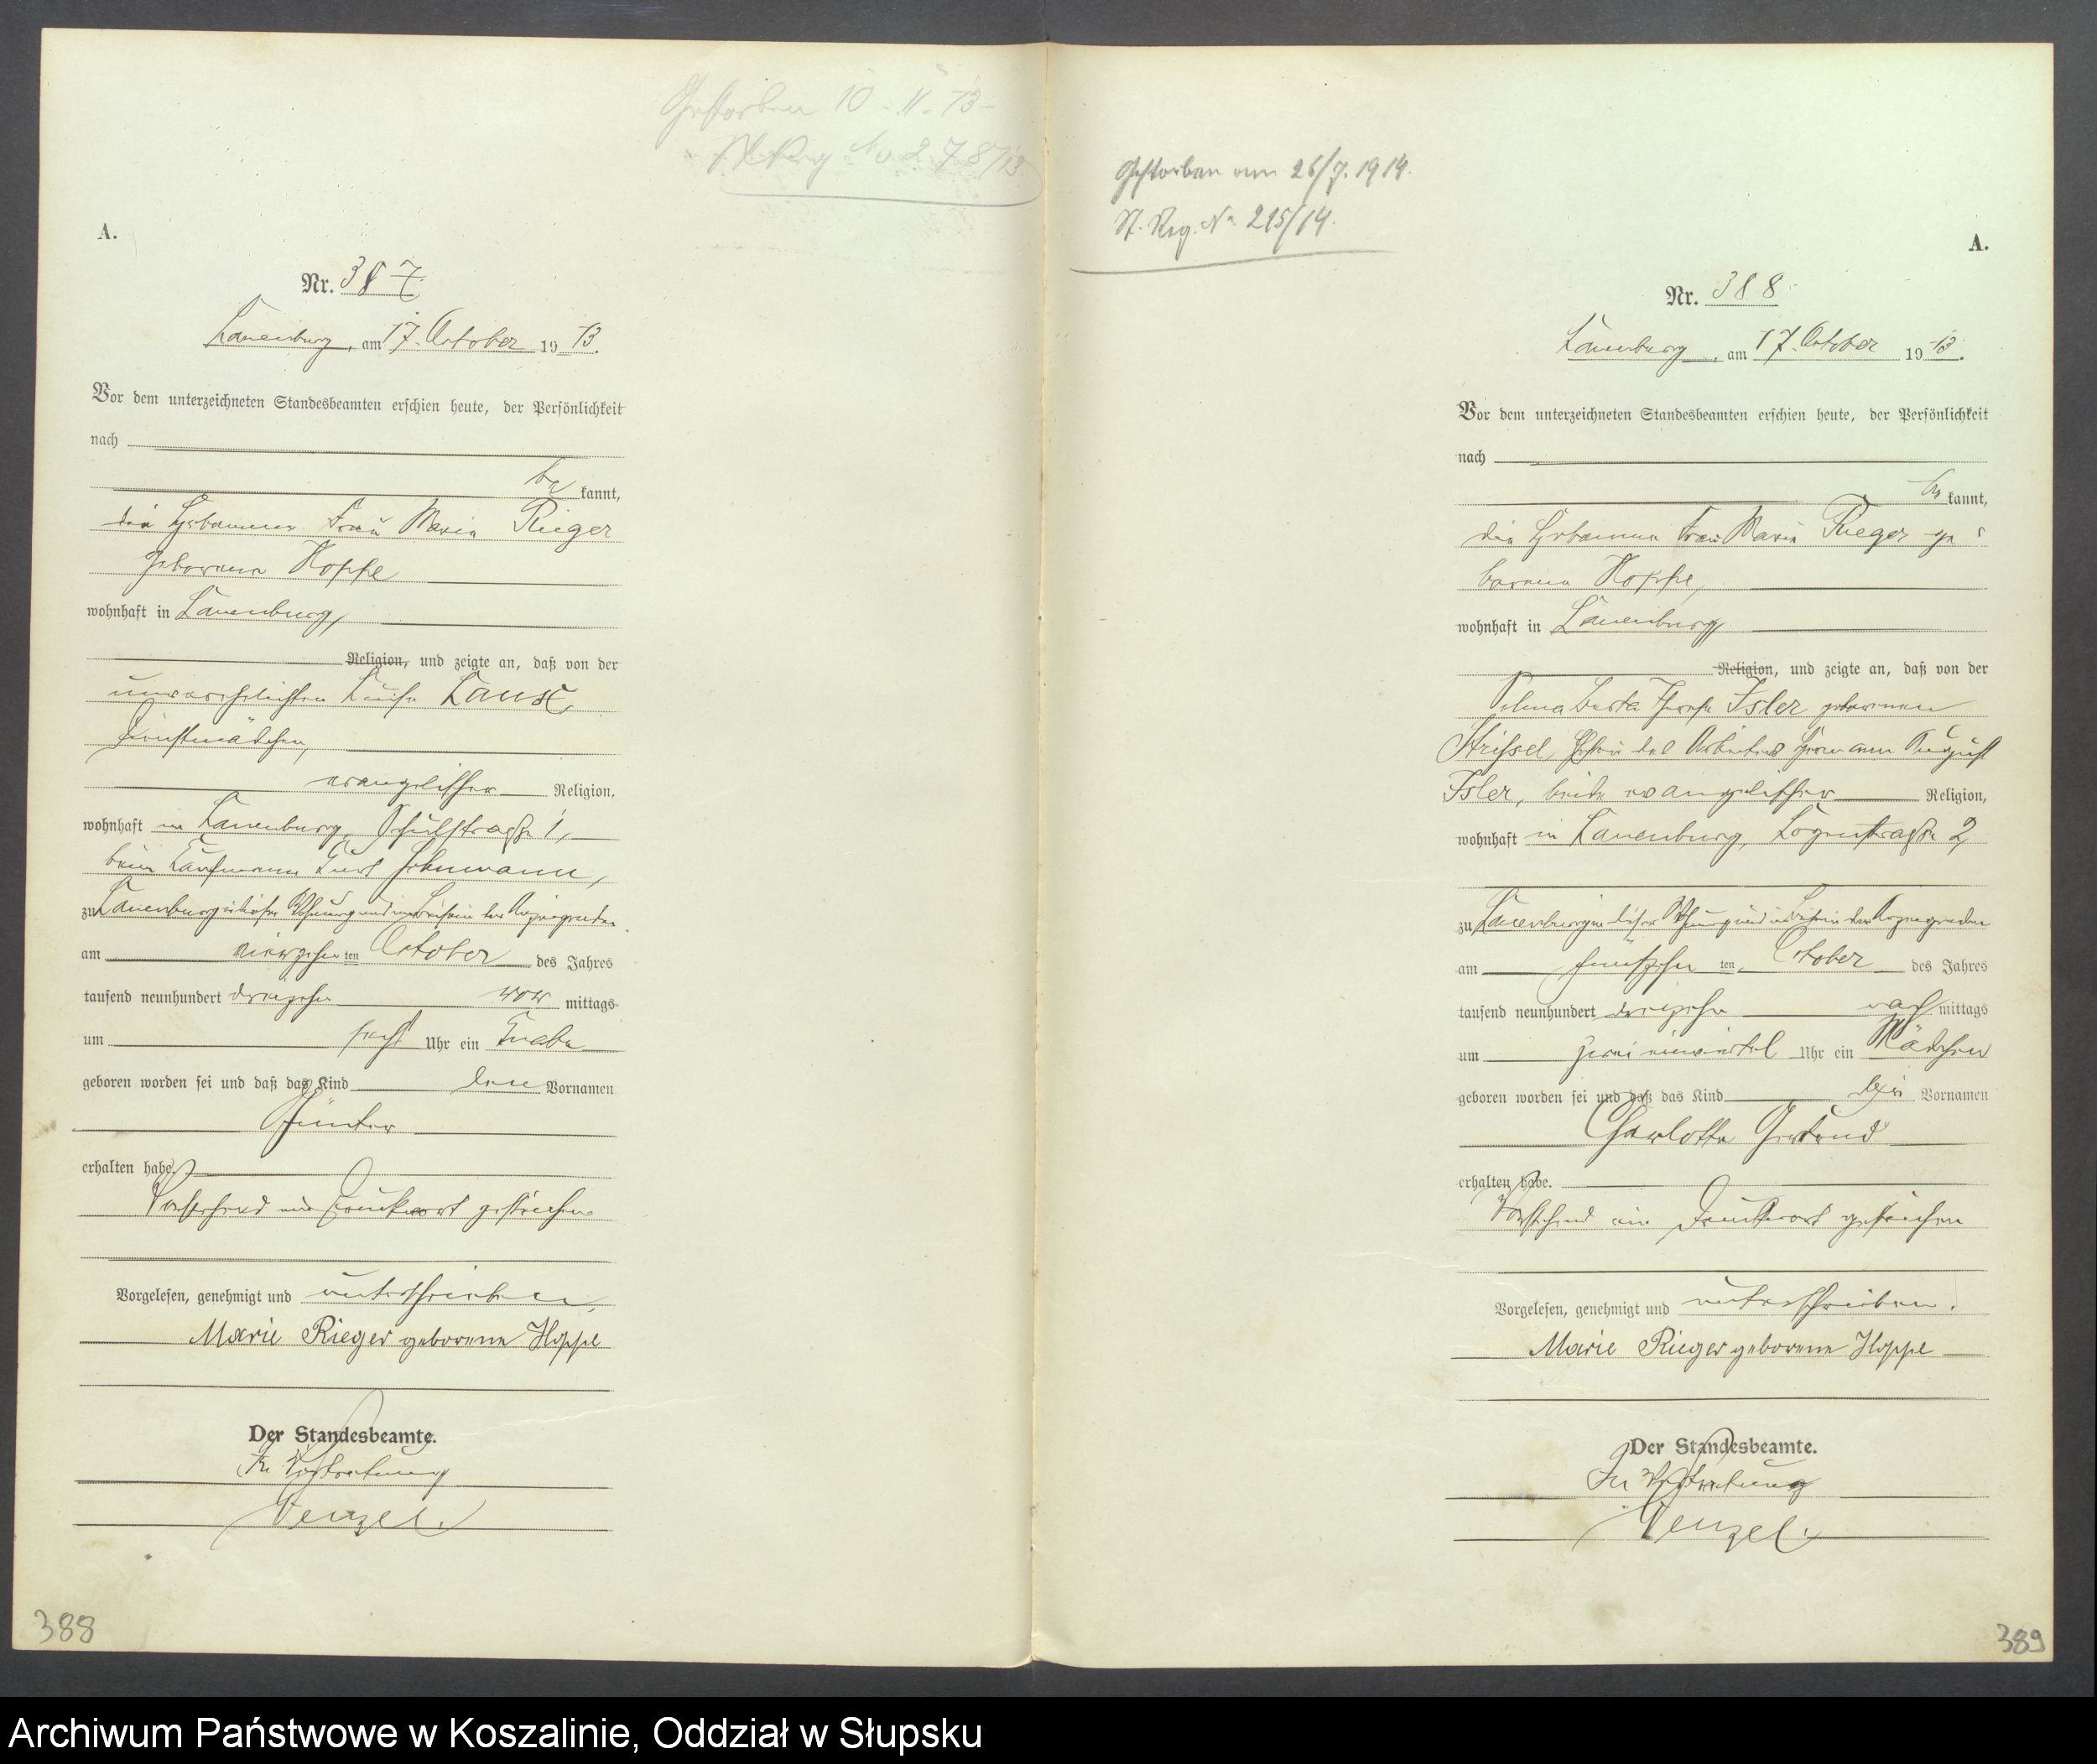 Gestorben 10. 11. 13
St. Reg No 278/13
A.
Nr. 387
Lauenburg, am 17. October 1913.
Vor dem unterzeichneten Standesbeamten erschien heute, der Persönlichkeit
nach
be kannt,
die Hebamme Frau Marie Rieger
geborene Hoppe
wohnhaft in Lauenburg,
Religion, und zeigte an, daß von der
unverehelichten Luise
Dienstmädchen,
evangelischer Religion,
wohnhaft in Lauenburg, Schulstraße 1,
beim Kaufmann Kurt
zu Lauenburg in dieser Wohnung und im Beisein der Anzeigenden
am vierzehn ten October des Jahres
tausend neunhundert dreizehn vor mittags
um sechs Uhr ein Knabe
geboren worden sei und daß das Kind den Vornamen
Günter
erhalten habe.
Vorstehend ein Druckwort gestrichen
Vorgelesen, genehmigt und unterschrieben.
Marie Rieger geborene Hoppe
Der Standesbeamte.
In Vertretung
Wenzel.
388
Gestorben am 26/7. 1914.
St. Reg. No 215/14.
A.
Nr. 388
Lauenburg, am 17. October 1913.
Vor dem unterzeichneten Standesbeamten erschien heute, der Persönlichkeit
nach
be kannt,
die Hebamme Frau Marie Rieger ge
borene Hoppe,
wohnhaft in Lauenburg,
Religion, und zeigte an, daß von der
Isler geborenen
Ehefrau des Arbeiters Hermann August
Isler, beide evangelischer Religion,
wohnhaft in Lauenburg, Logenstraße 2,
zu Lauenburg in dieser Wohnung und im Beisein der Anzeigenden
am fünfzehn ten October des Jahres
tausend neunhundert dreizehn nach mittags
um zwei einviertel Uhr ein Mädchen
geboren worden sei und daß das Kind die Vornamen
Charlotte Gertrud
erhalten habe.
Vorstehend ein Druckwort gestrichen
Vorgelesen, genehmigt und unterschrieben.
Marie Rieger geborene Hoppe
Der Standesbeamte.
In Vertretung
Wenzel.
389
Archiwum Państwowe w Koszalinie, Oddział w Słupsku